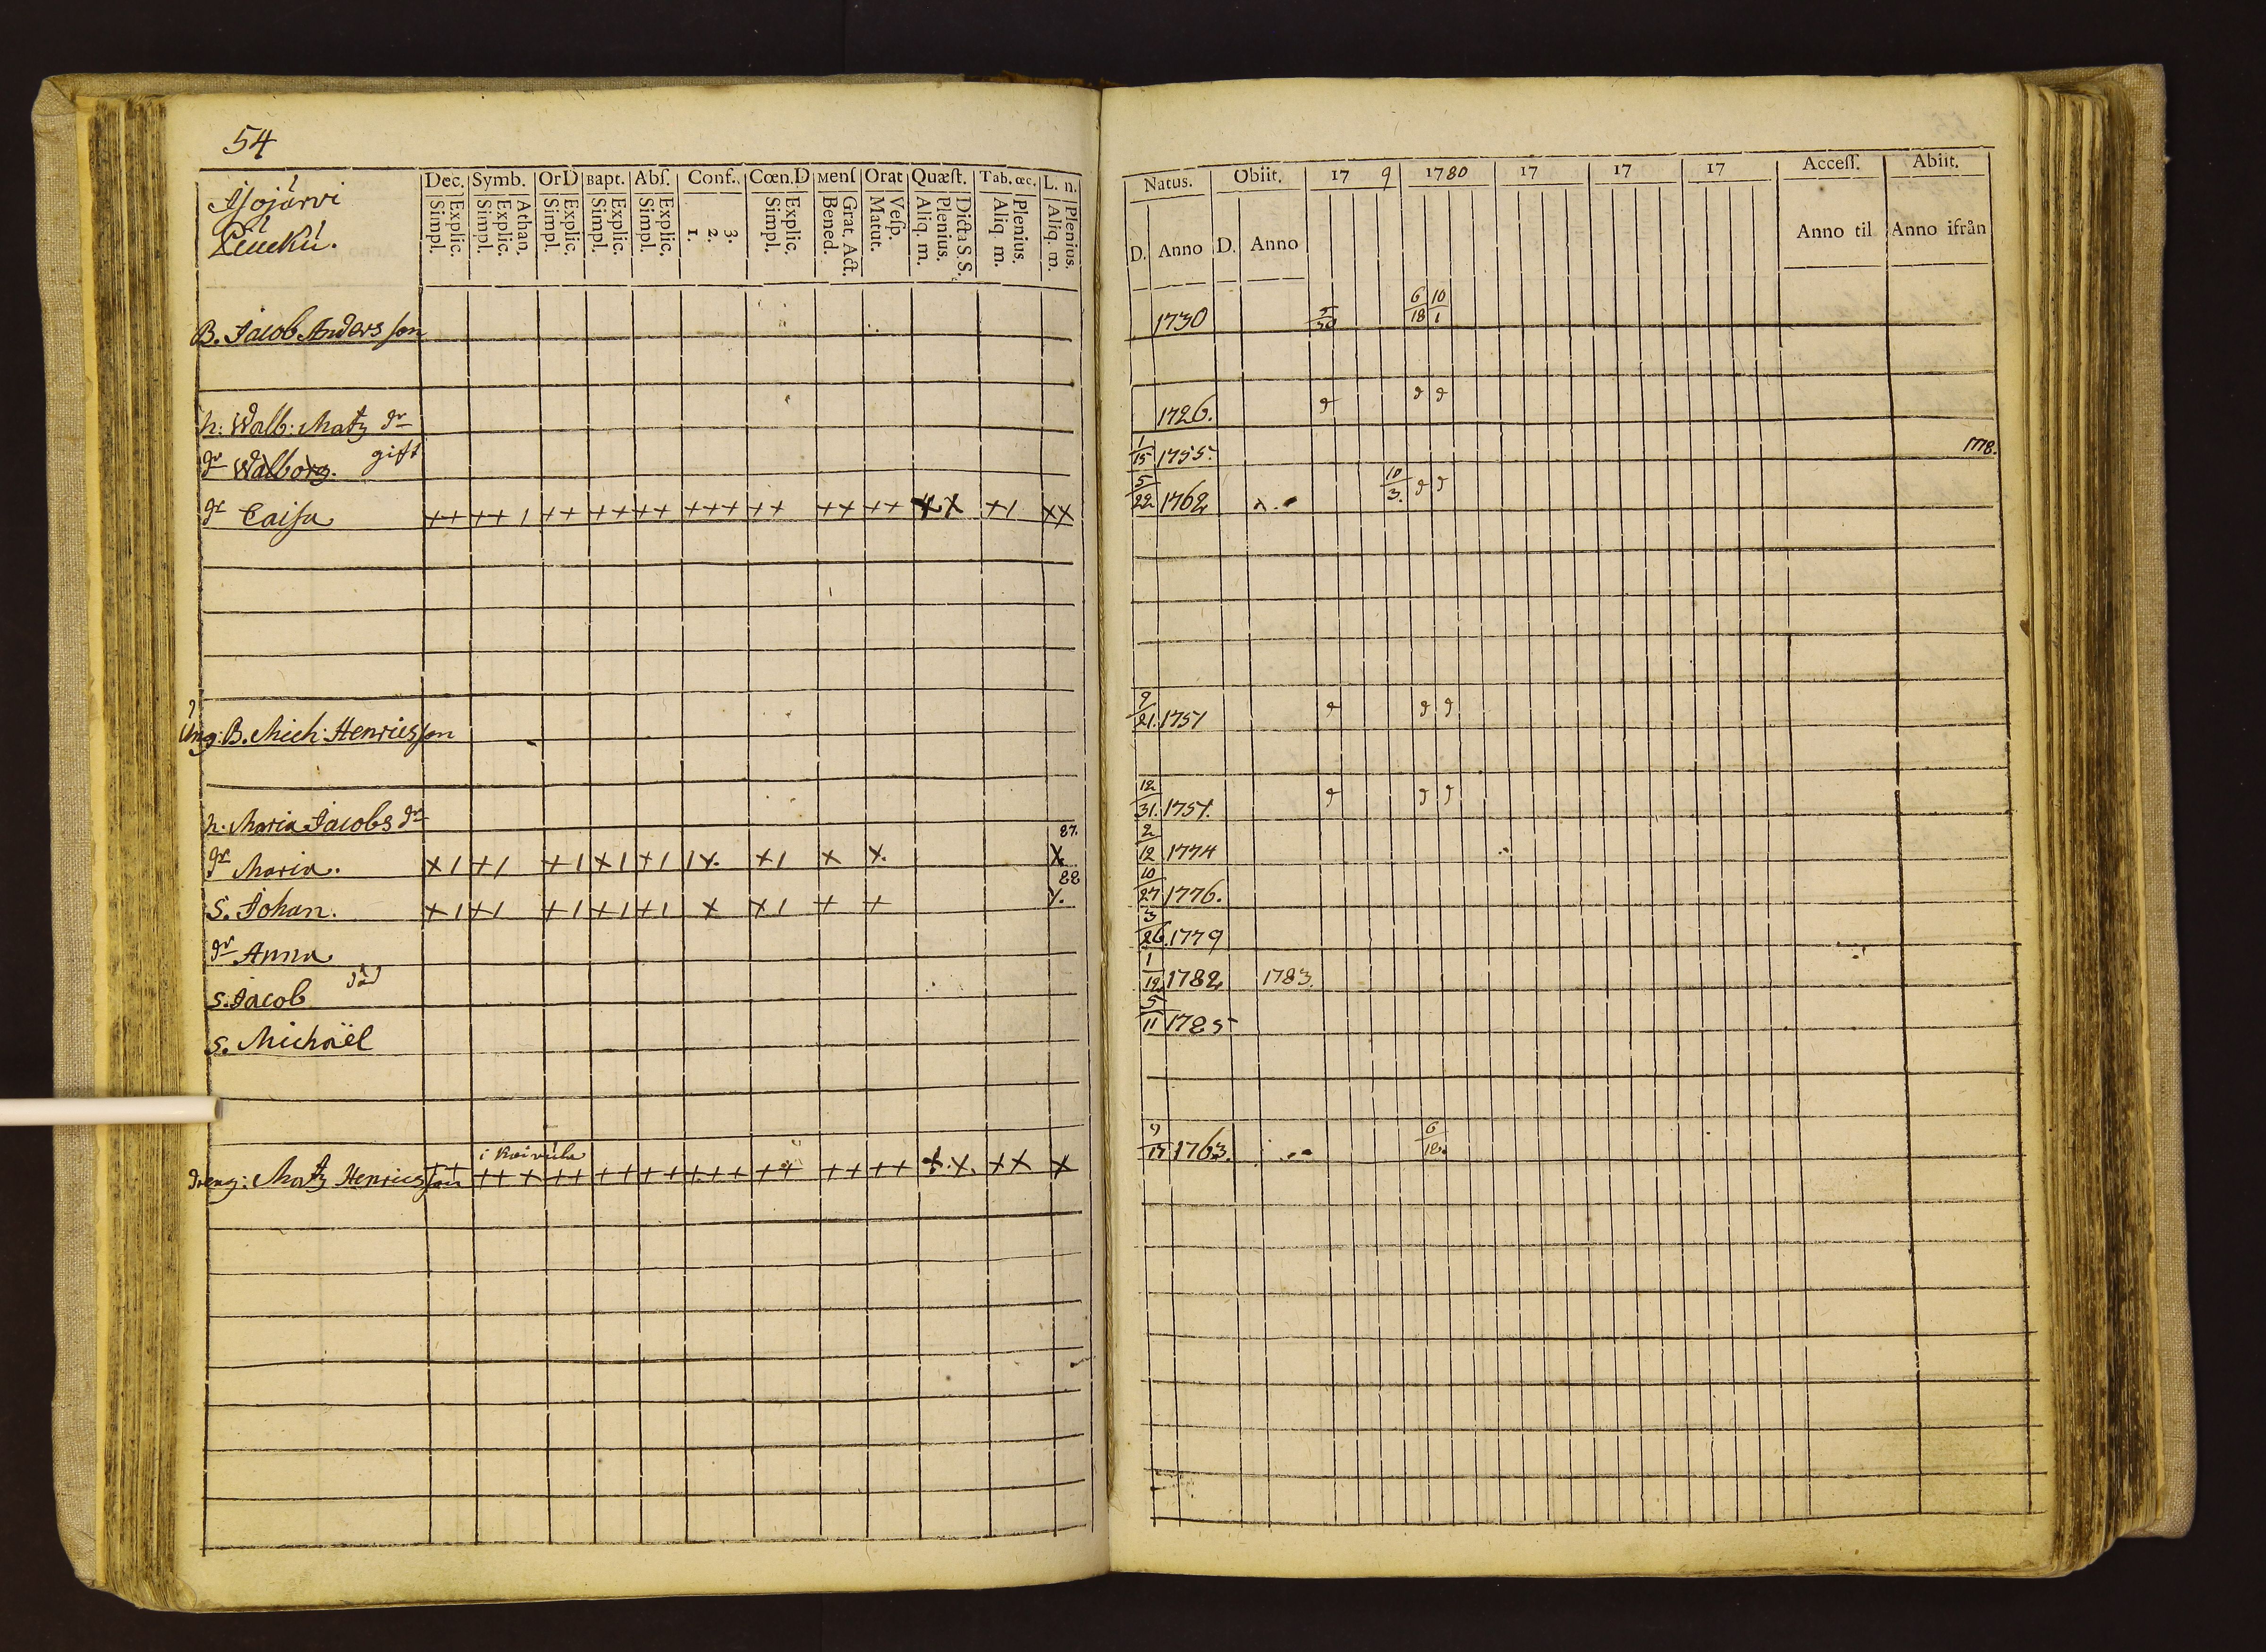 54
Dec. Symb. OrD Bapt. Abſ. Conf. Cœn.D Menſ Orat Quæſt. Tab. œc. L. n.
Explic. Simpl. Athan. Explic. Simpl. Explic. Simpl. Explic. Simpl. Explic. Simpl. 3. 2. 1. Explic. Simpl. Grat. Act. Bened. Veſp. Matut. Dicta S.S. Plenius. Aliq. m. Plenius. Aliq. m. Plenius. Aliq. m.
B. Jacob Andersſon
h: Walb: Matz dr
gift
dr Walborg.
dr Caiſa ++ ++ 1 ++ ++ ++ +++ ++ ++ ++ ++ +1 ++
Ung: B. Mich: Henricsſon
h. Maria Jacobs dr
87.
dr Maria. +1 +1 +1 +1 +1 1+. +1 + +. +
88
S. Johan. +1 +1 +1 +1 +1 + +1 + + +.
dr Anna
död
S. Jacob
S. Michaël
i Koivula
dreng: Matz Henricsſon ++ +++ ++ ++ ++ +++ ++ ++ ++ +.+. ++ +
Natus. Obiit. 17 9 1780 17 17 17 Acceſſ. Abiit.
D. Anno D. Anno Anno til Anno ifrån
1730 6/18 10/1
1726.
1/15 1755. 1778.
5/22 1762 10/3.
9/21. 1751
12/31. 1757.
2/12 1774
10/27 1776.
3/26. 1779
1/12 1782 1783.
5/11 1785
1763. 6/18.